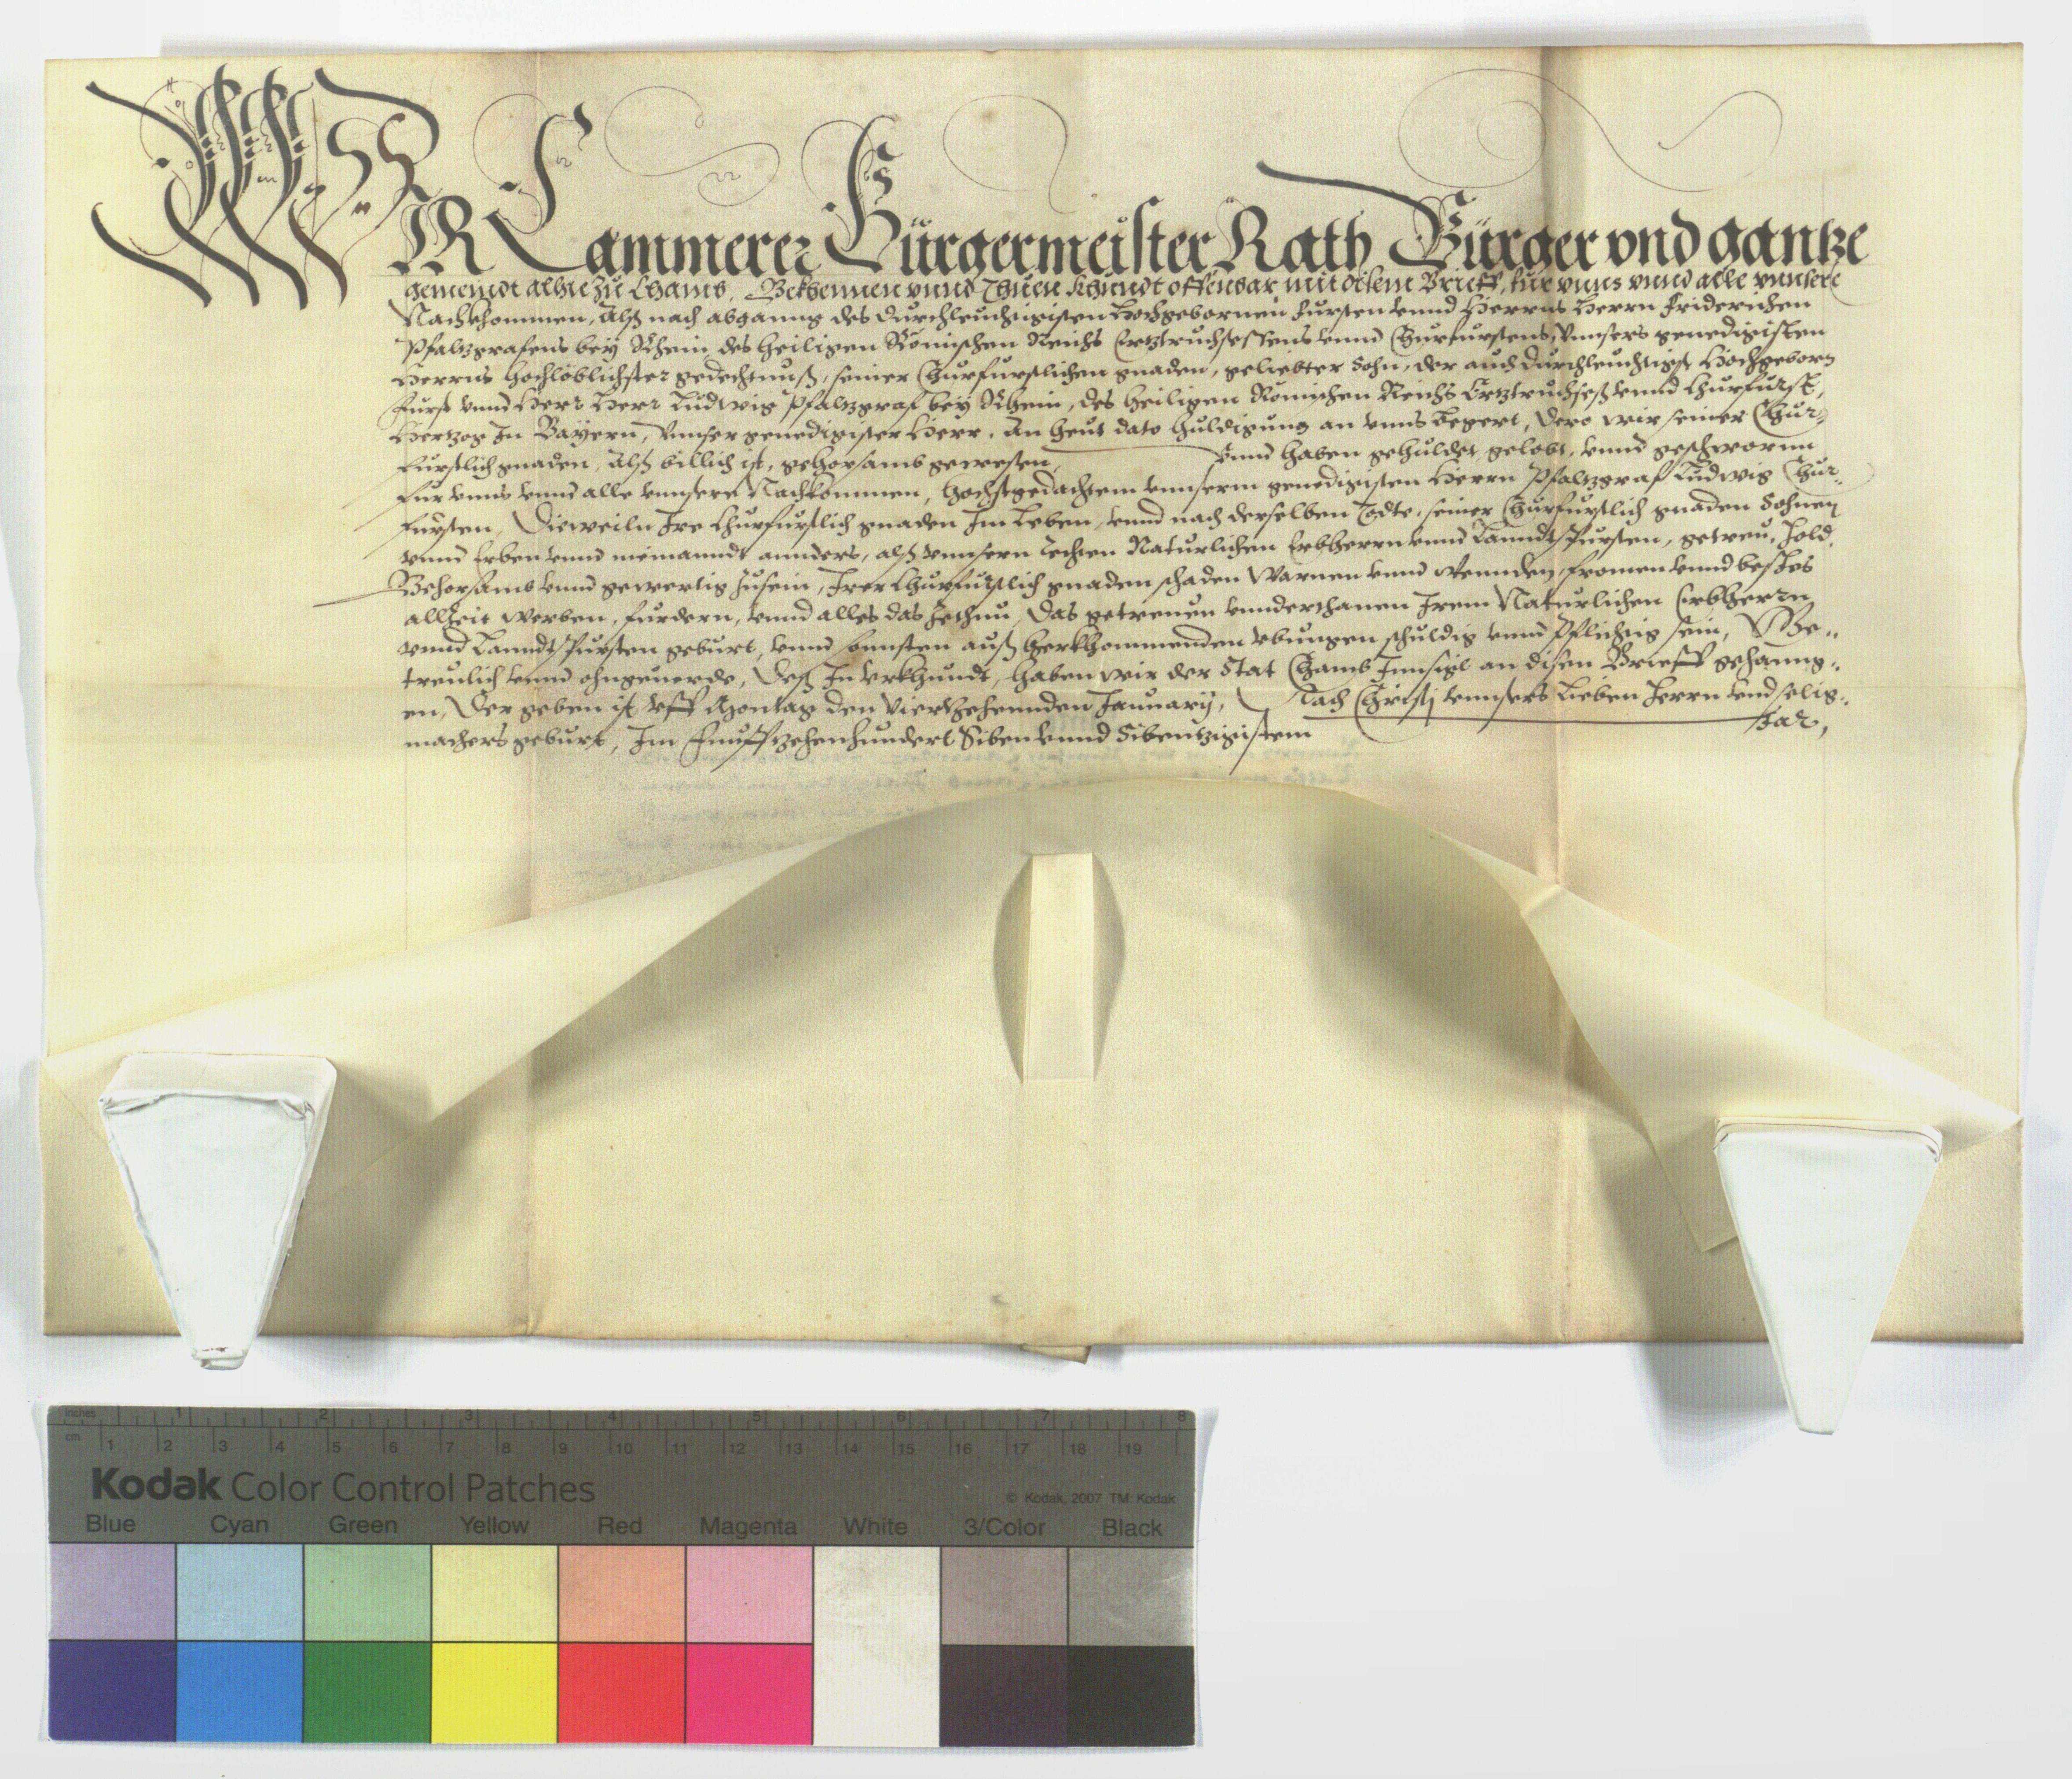 WIR Cammerer Bürgermeister Rath Bürger vnd gantze
gemeindt alhie zu Chamb, Bekhennen vnnd Thuen khundt offenbar mit disem Brieff, fur vnns vnnd alle vnnsere
Nachkhommen, Alß nach abganng des durchleuchtigisten Hochgebornen Fursten vnnd Herrns Herrn Friderichen
Pfaltzgrafens bey Rhein des heiligen Römischen Reichs Ertztruchsessens vnnd Churfurstens, vnnsers genedigisten
Herrns hochlöblichster gedechtnuß, seiner Churfurstlichen gnaden, geliebter Sohn, der auch durchleuchtigst Hochgeborn
Furst vnnd Herr Herr Ludwig Pfaltzgraf bey Rhein, des heiligen Römischen Reichs Ertztruchseß vnnd Churfurst,
Hertzog In Bayern, vnnser genedigister Herr. An heut dato huldigung an vnns begert, Dero wir seiner Chur-
Furstlich gnaden, Alß billich ist, gehorsamb gewesen, vnnd haben gehuldet, gelobt, vnnd geschwornn
fur vnns vnnd alle vnnsere Nachkommen, hochstgedachtem vnnserm genedigisten Herrn Pfaltzgraf Ludwig Chur-
fursten, Dieweiln Ire Churfurstlich gnaden Im Leben, vnnd nach derselben Todte, seiner Churfurstlich gnaden Sohnen
vnnd Erben vnnd niemanndt annders, alß vnnsern rechten Naturlichen Erbherrn vnnd Lanndtsfursten, getreu, hold,
Gehorsamb vnnd gewertig zusein, Irer Churfurstlich gnaden schaden Warnen vnnd Wennden, fromen vnnd bestes
allzeit werben, furdern, vnnd alles das zethun, Das getreuen vnnderthanen Irem Naturlichen Erbherrn
vnnd Lanndtsfursten geburt, vnnd sonnsten auß herkhommenden vbungen schuldig vnnd Pflichtig sein, Ge-
treulich vnnd ohngeuerde, Deß In vrkhundt, haben wir der Stat Chamb Innsigl an disen Brieff gehanng-
en, Der geben ist vff Montag den Viertzehennden January, Nach Christj vnnsers Lieben Herrn vnd selig-
machers geburt, Im Funffzehenhundert Siben vnnd Sibentzigistem Jar,
inches 1 2 3 4 5 6 7 8
cm 1 2 3 4 5 6 7 8 9 10 11 12 13 14 15 16 17 18 19
Kodak Color Control Patches
© Kodak, 2007 TM: Kodak
Blue Cyan Green Yellow Red Magenta White 3/Color Black